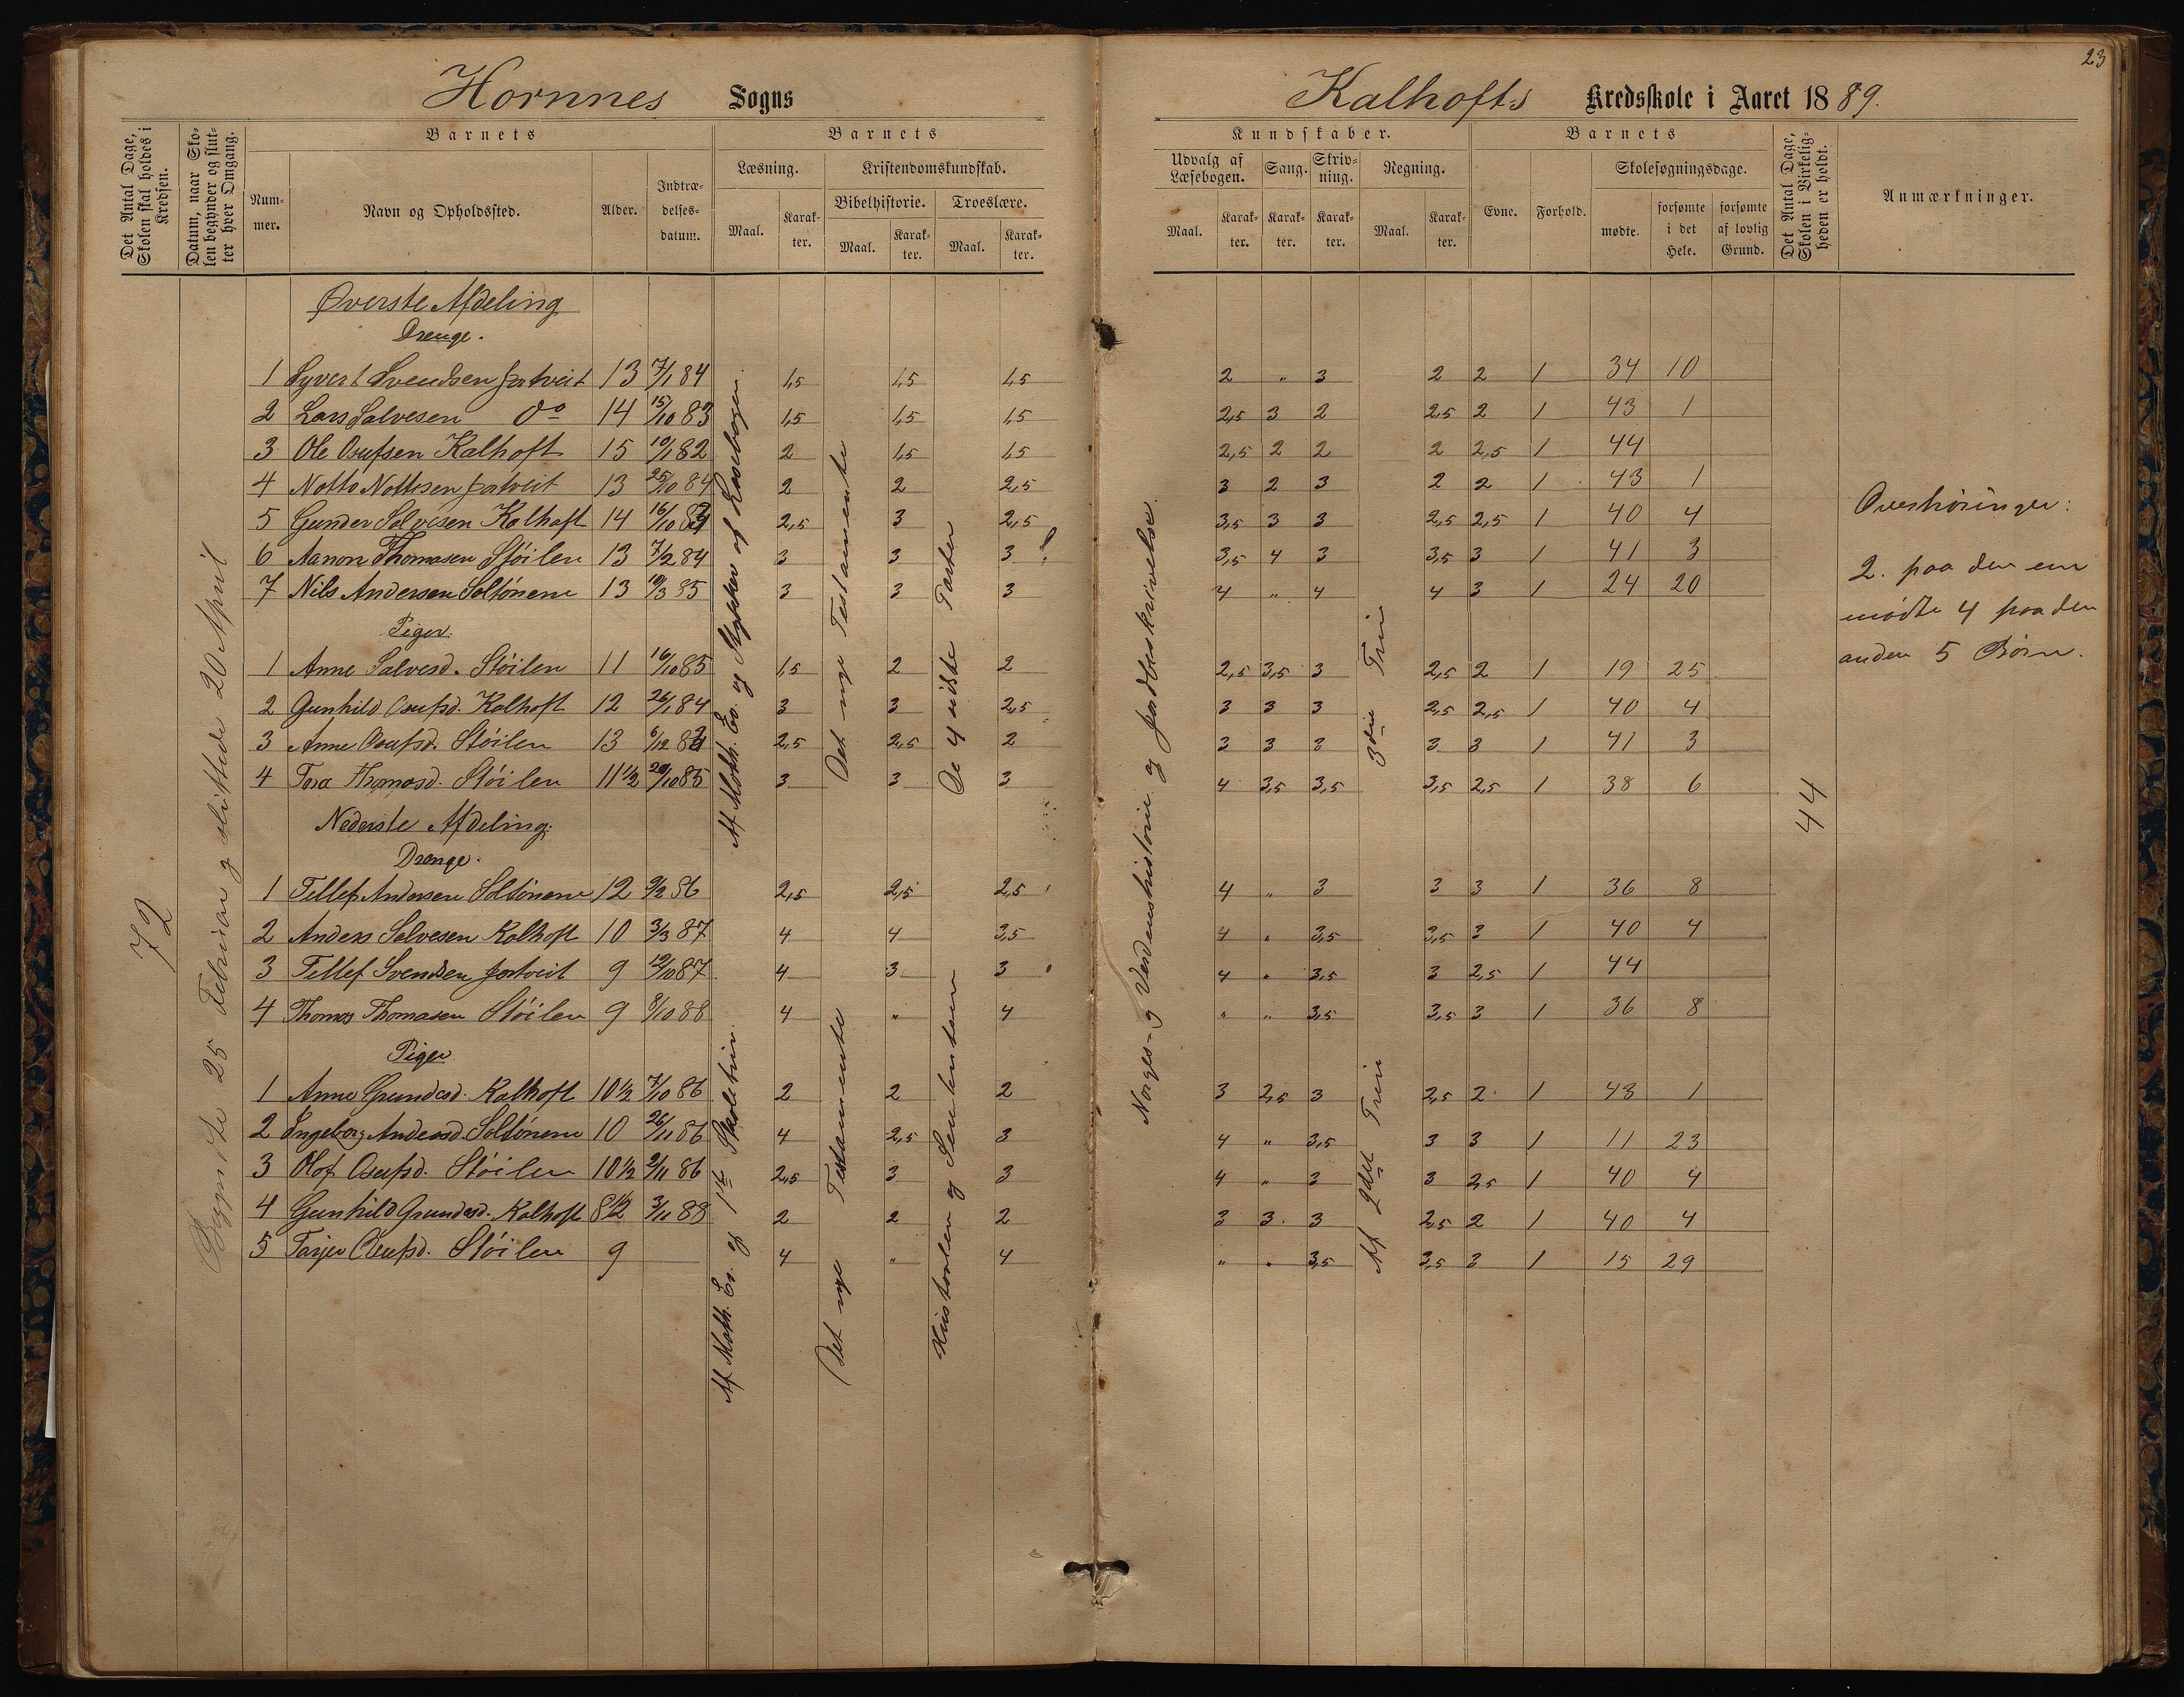 23
Hornnes Sogns
Kalhofts Kredsskole i Aaret 1889.
Det Antal Dage, Skolen skal holdes i Kredsen.
Datum, naar Skolen begynder og slutter hver Omgang.
Barnets
Nummer.
Navn og Opholdssted.
Alder.
Indtrædelsesdatum.
Barnets
Læsning.
Maal.
Karakter.
Kristendomskundskab.
Bibelhistorie.
Maal.
Karakter.
Troeslære.
Maal.
Karakter.
Kundskaber.
Udvalg af Læsebogen.
Maal.
Karakter.
Sang.
Karakter.
Skrivning.
Karakter.
Regning.
Maal.
Karakter.
Barnets
Evne.
Forhold.
Skolesøgningsdage.
mødte.
forsømte i det Hele.
forsømte af lovlig Grund.
Det Antal Dage, Skolen i Virkeligheden er holdt.
Anmærkninger.
72
Begyndte 25 Februar og sluttede 20 April
Øverste Afdeling
Drenge.
1 Syvert Svendsen Jortveit 13 7/1 84 1,5 1,5 1,5 2 " 3 2 2 1 34 10
2 Lars Salvesen Do 14 15/10 83 1,5 1,5 1,5 2,5 3 2 2,5 2 1 43 1
3 Ole Osufsen Kalhoft 15 19/1 82 2 1,5 1,5 2,5 2 2 2 2,5 1 44
4 Notto Nottesen Jortveit 13 25/10 84 2 2 2,5 3 2 3 2 2 1 43 1
5 Gunder Salvesen Kalhoft 14 16/10 83 2,5 3 2,5 3,5 3 3 2,5 2,5 1 40 4
6 Aanon Thomasen Støilen 13 7/2 84 3 3 3 3,5 4 3 3,5 3 1 41 3
7 Nils Andersen Soltønene 13 19/3 85 3 3 3 4 " 4 4 3 1 24 20
Piger.
1 Anne Salvesd. Støilen 11 16/10 85 1,5 2 2 2,5 3,5 3 2,5 2 1 19 25
2 Gunhild Osufsd. Kalhoft 12 26/1 84 3 3 2,5 3 3 3 2,5 2,5 1 40 4
3 Anne Osufsd. Støilen 13 6/12 2,5 2,5 2 3 3 3 3 3 1 41 3
4 Tora Thomasd. Støilen 11 1/2 29/10 85 3 3 3 4 3,5 3,5 3,5 2,5 1 38 6
Af Math. Ev. og Stykker af Læsebogen
Det nye Testamente
De 4 sidste Parter
3die Trin
Norges- og Verdenshistorie og Jordbeskrivelse.
44
Nederste Afdeling.
Drenge.
1 Tellef Andersen Soltønene 12 9/2 86 2,5 2,5 2,5 4 " 3 3 3 1 36 8
2 Anders Salvesen Kalhoft 10 3/3 87 4 4 3,5 4 " 3,5 3,5 3 1 40 4
3 Tellef Svendsen Jortveit 9 19/10 87 4 3 3 4 " 3,5 3 2,5 1 44
4 Thomas Thomasen Støilen 9 8/10 88 4 " 4 " " 3,5 3,5 3 1 36 8
Piger
1 Anne Gundersd. Kalhoft 10 1/2 7/10 86 2 2 2 3 2,5 3 2,5 2 1 43 1
2 Ingeborg Andersd. Soltønene 10 26/11 86 4 2,5 3 4 " 3,5 3 3 1 11 23
3 Olof Osufsd. Støilen 10 1/2 9/11 86 2,5 3 3 4 " 3 3 2,5 1 40 4
4 Gunhild Gundersd. Kalhoft 8 1/2 3/11 88 2 2 2 3 3 3 2,5 2 1 40 4
5 Tarjer Osufsd. Støilen 9 4 " 4 " " 3,5 3,5 3 1 15 29
Af Math. Ev. og 1ste Skoletrin.
Det nye Testamente
Historien og
Af 2det Trin
Overhøringer:
2. paa den ene
mødte 4 paa den
anden 5 Børn.